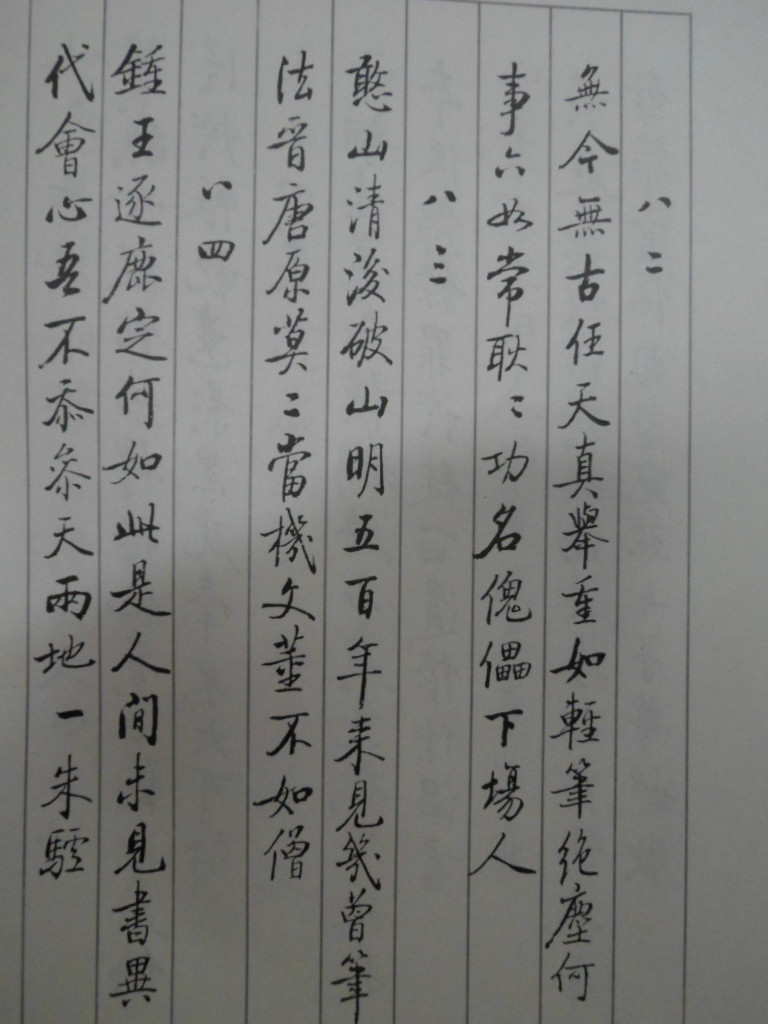 八二
無今無古任天真舉重如輕筆絶塵何
事六如常耿〻功名傀儡下場人
八三
憨山清後破山明五百年來見幾曾筆
法晉唐原莫二當機文董不如僧
八四
鍾王逐鹿定何如此是人間未見書異
代會心吾不忝參天兩地一朱驢